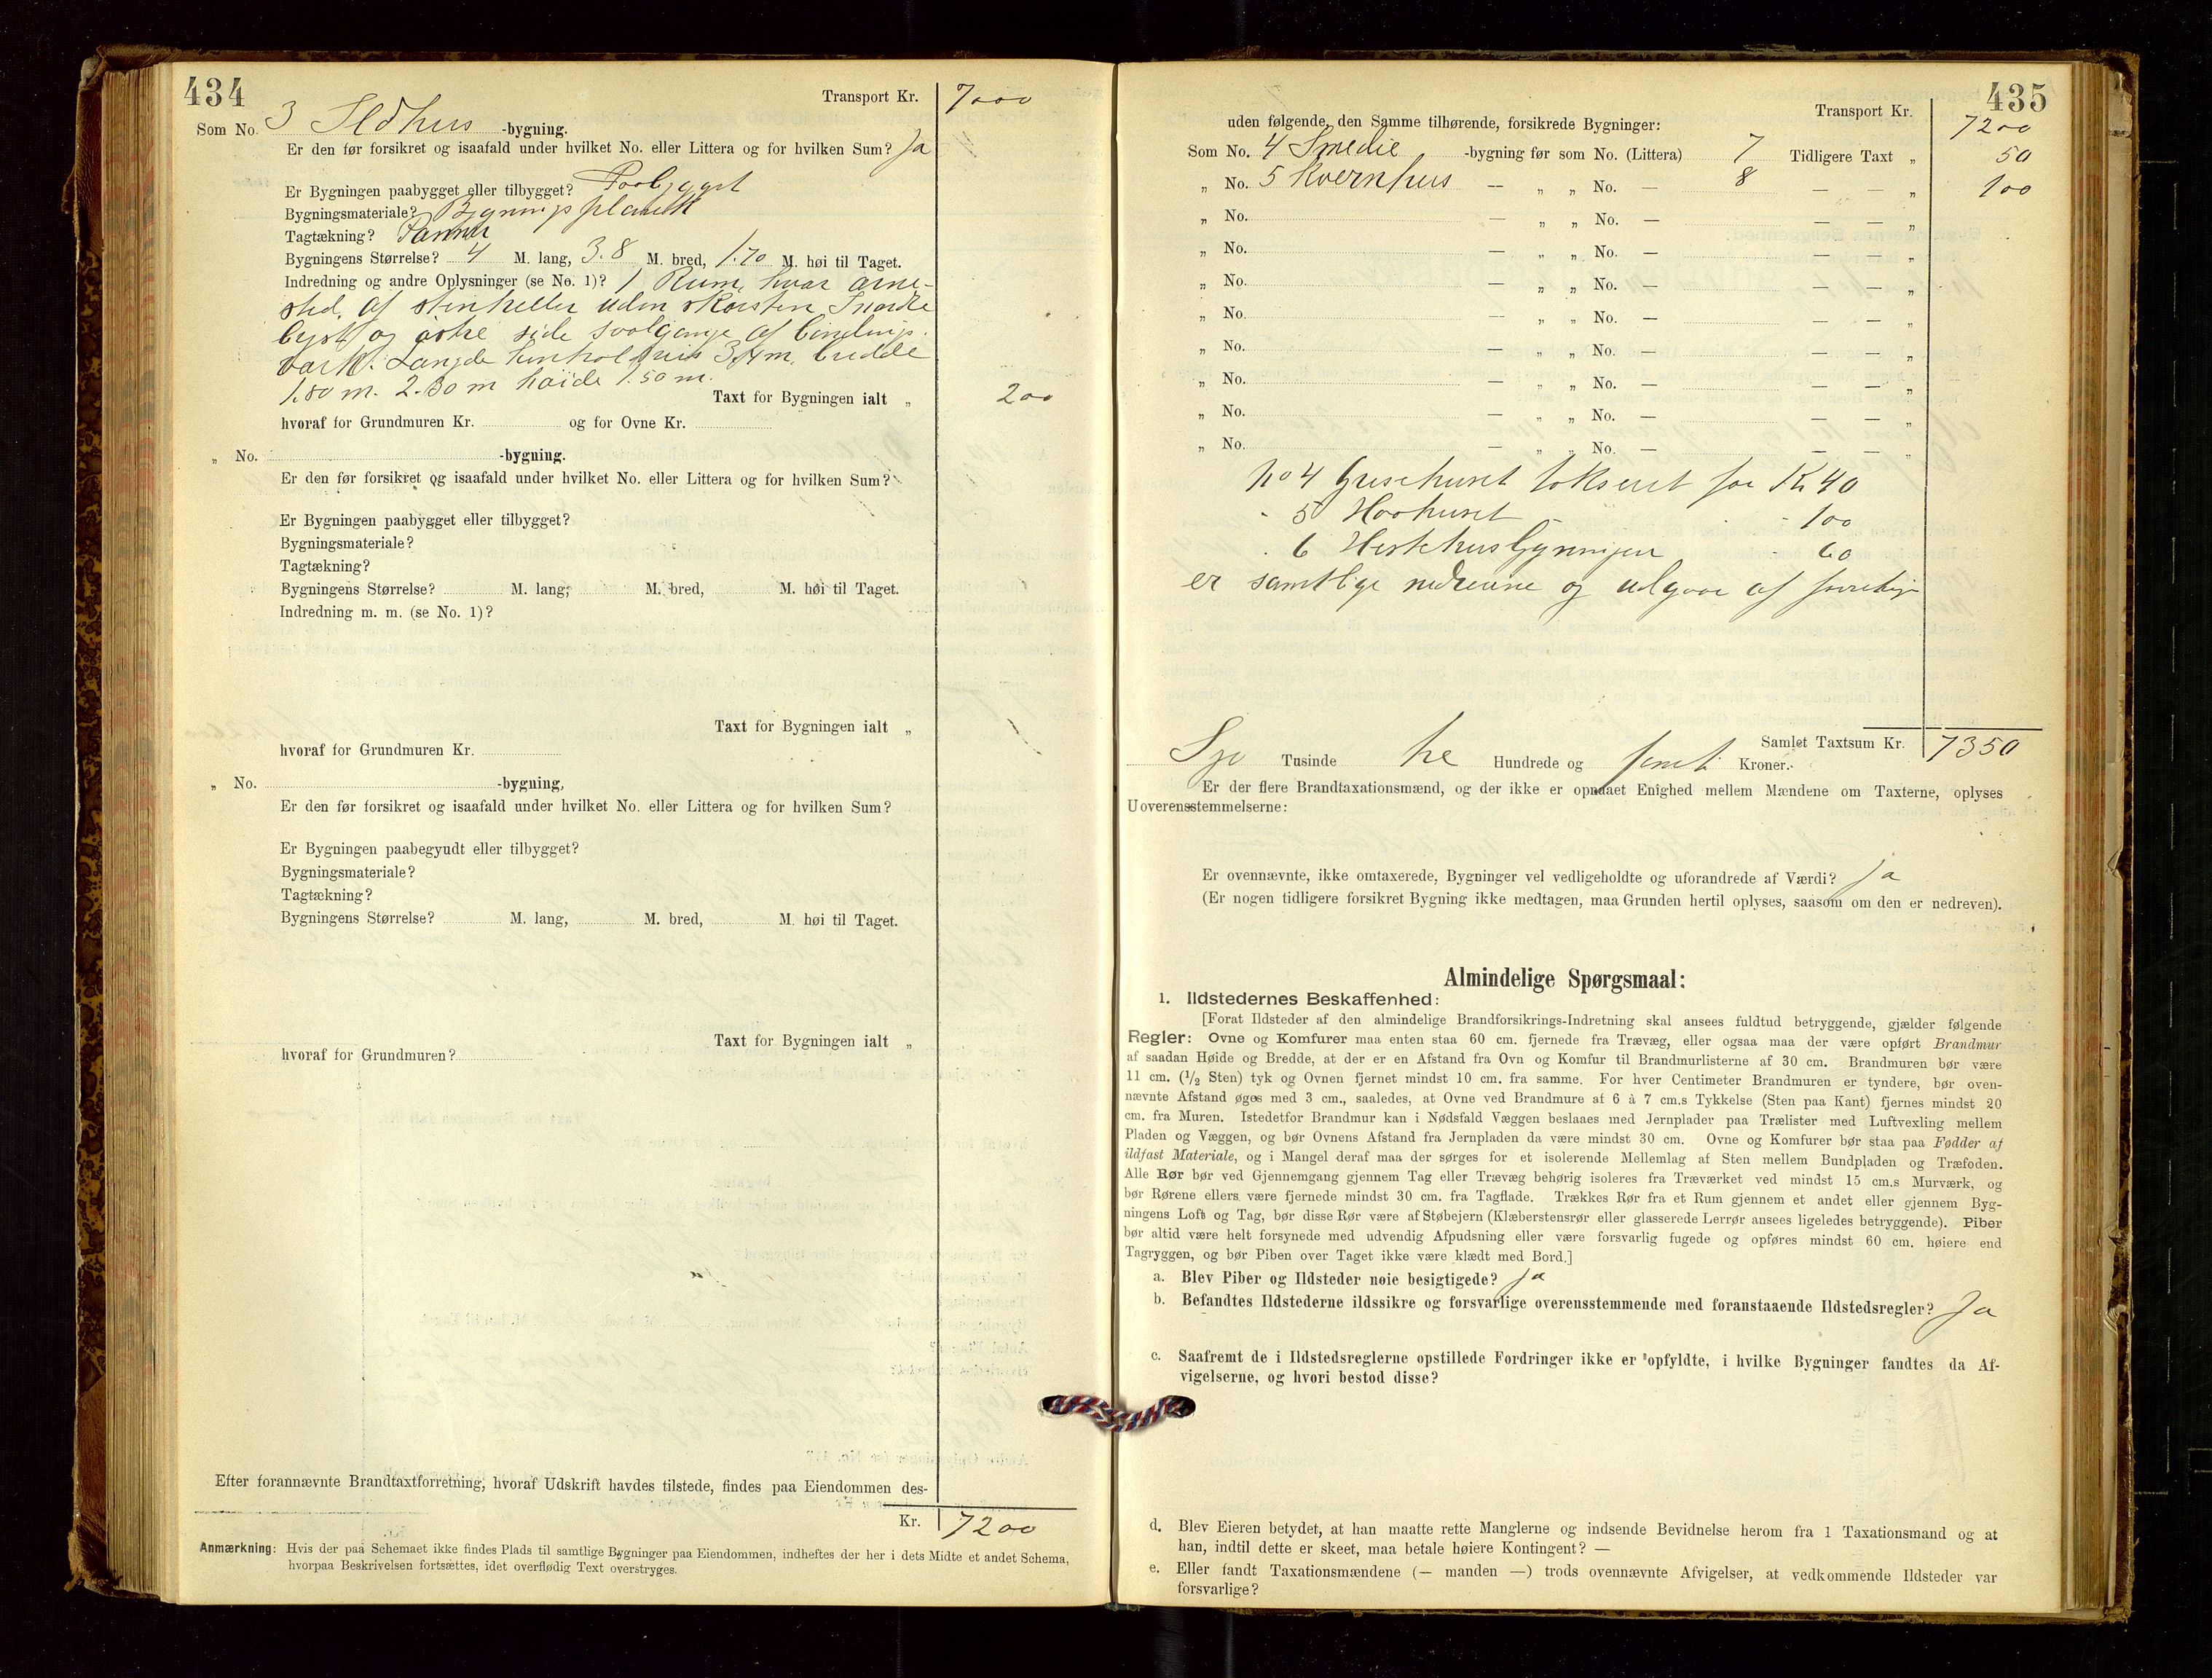 434
Transport Kr. 7000
Som No. 3 Ildhus -bygning.
Er den før forsikret og isaafald under hvilket No. eller Littera og for hvilken Sum? Ja
Er Bygningen paabygget eller tilbygget? Paabygget
Bygningsmateriale? Bygningsplank
Tagtækning? Panner
Bygningens Størrelse? 4 M. lang, 3.8 M. bred, 1.70 M. høi til Taget.
Indredning og andre Oplysninger (se No. 1)? 1 Rum, hvor arne-
sted, af stenheller uden skorsten I nordre
byst og østre side svalgange af bindings
værk. Længde henholdsvis 3.4 m. bredde
1.80 m. 2.80 m høide 1.50 m.
Taxt for Bygningen ialt „ 200
hvoraf for Grundmuren Kr. og for Ovne Kr.
„ No. -bygning.
Er den før forsikret og isaafald under hvilket No. eller Littera og for hvilken Sum?
Er Bygningen paabygget eller tilbygget?
Bygningsmateriale?
Tagtækning?
Bygningens Størrelse? M. lang, M. bred, M. høi til Taget.
Indredning m. m. (se No. 1)?
Taxt for Bygningen ialt „
hvoraf for Grundmuren Kr.
„ No. -bygning,
Er den før forsikret og isaafald under hvilket No. eller Littera og for hvilken Sum?
Er Bygningen paabegyudt eller tilbygget?
Bygningsmateriale?
Tagtækning?
Bygningens Størrelse? M. lang, M. bred, M. høi til Taget.
Taxt for Bygningen ialt „
hvoraf for Grundmuren?
Efter forannævnte Brandtaxtforretning, hvoraf Udskrift havdes tilstede, findes paa Eiendommen des-
Kr. 7200
Anmærkning: Hvis der paa Schemaet ikke findes Plads til samtlige Bygninger paa Eiendommen, indheftes der her i dets Midte et andet Schema,
hvorpaa Beskrivelsen fortsættes, idet overflødig Text overstryges.
435
Transport Kr. 7200
uden følgende, den Samme tilhørende, forsikrede Bygninger:
Som No. 4 Smedie -bygning før som No. (Littera) 7 Tidligere Taxt „ 50
„ No. 5 Kvernhus — „ „ No. — 8 — — „ 100
„ No. — „ „ No. — — — „
„ No. — „ „ No. — — — „
„ No. — „ „ No. — — — „
„ No. — „ „ No. — — — „
„ No. — „ „ No. — — — „
„ No. — „ „ No. — — — „
„ No. — „ „ No. — — — „
„ No. — „ „ No. — — — „
No 4 Grisehuset takseret for Kr 40
" 5 Høohuset " 100
" 6 Hestehusbygningen " 60
er samtlige nedrevne og udgaar af
Samlet Taxtsum Kr. 7350
Syv Tusinde tre Hundrede og femti Kroner.
Er der flere Brandtaxationsmænd, og der ikke er opnaaet Enighed mellem Mændene om Taxterne, oplyses
Uoverensstemmelserne:
Er ovennævnte, ikke omtaxerede, Bygninger vel vedligeholdte og uforandrede af Værdi? Ja
(Er nogen tidligere forsikret Bygning ikke medtagen, maa Grunden hertil oplyses, saasom om den er nedreven).
Almindelige Spørgsmaal:
1. Ildstedernes Beskaffenhed:
[Forat Ildsteder af den almindelige Brandforsikrings-Indretning skal ansees fuldtud betryggende, gjælder følgende
Regler: Ovne og Komfurer maa enten staa 60 cm. fjernede fra Trævæg, eller ogsaa maa der være opført Brandmur
af saadan Høide og Bredde, at der er en Afstand fra Ovn og Komfur til Brandmurlisterne af 30 cm. Brandmuren bør være
11 cm. (1/2 Sten) tyk og Ovnen fjernet mindst 10 cm. fra samme. For hver Centimeter Brandmuren er tyndere, bør oven-
nævnte Afstand øges med 3 cm., saaledes, at Ovne ved Brandmure af 6 à 7 cm.s Tykkelse (Sten paa Kant) fjernes mindst 20
cm. fra Muren. Istedetfor Brandmur kan i Nødsfald Væggen beslaaes med Jernplader paa Trælister med Luftvexling mellem
Pladen og Væggen, og bør Ovnens Afstand fra Jernpladen da være mindst 30 cm. Ovne og Komfurer bør staa paa Fødder af
ildfast Materiale, og i Mangel deraf maa der sørges for et isolerende Mellemlag af Sten mellem Bundpladen og Træfoden.
Alle Rør bør ved Gjennemgang gjennem Tag eller Trævæg behørig isoleres fra Træværket ved mindst 15 cm.s Murværk, og
bør Rørene ellers være fjernede mindst 30 cm. fra Tagflade. Trækkes Rør fra et Rum gjennem et andet eller gjennem Byg-
ningens Loft og Tag, bør disse Rør være af Støbejern (Klæberstensrør eller glasserede Lerrør ansees ligeledes betryggende). Piber
bør altid være helt forsynede med udvendig Afpudsning eller være forsvarlig fugede og opføres mindst 60 cm. høiere end
Tagryggen, og bør Piben over Taget ikke være klædt med Bord.]
a. Blev Piber og Ildsteder nøie besigtigede? ja
b. Befandtes Ildstederne ildssikre og forsvarlige overensstemmende med foranstaaende Ildstedsregler? Ja
c. Saafremt de i Ildstedsreglerne opstillede Fordringer ikke er opfyldte, i hvilke Bygninger fandtes da Af-
vigelserne, og hvori bestod disse?
d. Blev Eieren betydet, at han maatte rette Manglerne og indsende Bevidnelse herom fra 1 Taxationsmand og at
han, indtil dette er skeet, maa betale høiere Kontingent? —
e. Eller fandt Taxationsmændene (— manden —) trods ovennævnte Afvigelser, at vedkommende Ildsteder var
forsvarlige?